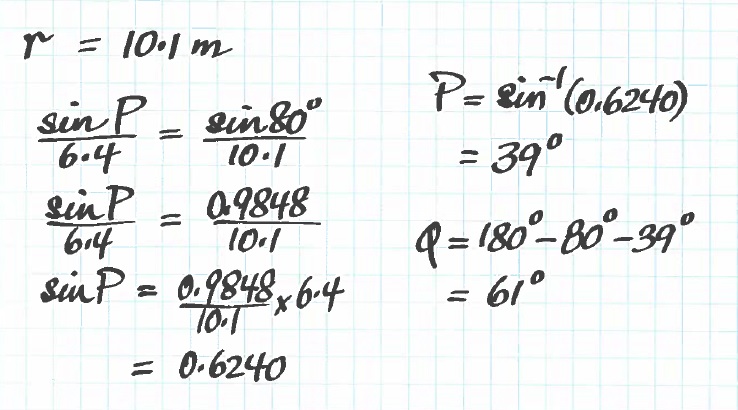 r = 10.1 m
sin P / 6.4 = sin 80° / 10.1
sin P / 6.4 = 0.9848 / 10.1
sin P = 0.9848 / 10.1 × 6.4
= 0.6240
P = sin⁻¹(0.6240)
= 39°
Q = 180° - 80° - 39°
= 61°